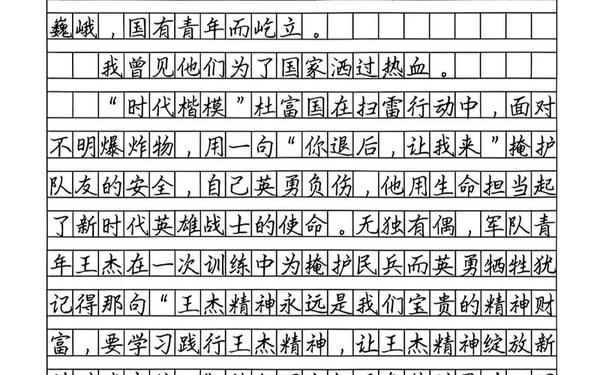 巍峨，国有青年而屹立。
我曾见他们为了国家洒过热血。
“时代楷模”杜富国在扫雷行动中，面对
不明爆炸物，用一句“你退后，让我来”掩护
队友的安全，自己英勇负伤，他用生命担当起
了新时代英雄战士的使命。无独有偶，军队青
年王杰在一次训练中为掩护民兵而英勇牺牲犹
记得那句“王杰精神永远是我们宝贵的精神财
富，要学习践行王杰精神，让王杰精神绽放新